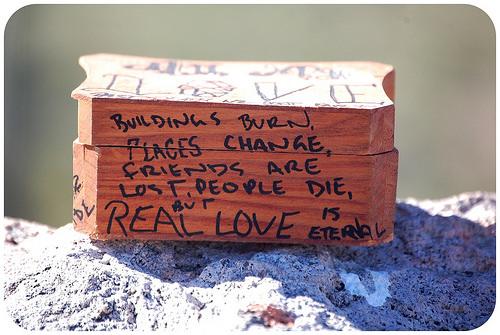 LOVE
BUILDINGS BURN,
PLACES CHANGE,
FRIENDS ARE
LOST, PEOPLE DIE,
BUT
REAL LOVE IS
ETERNAL